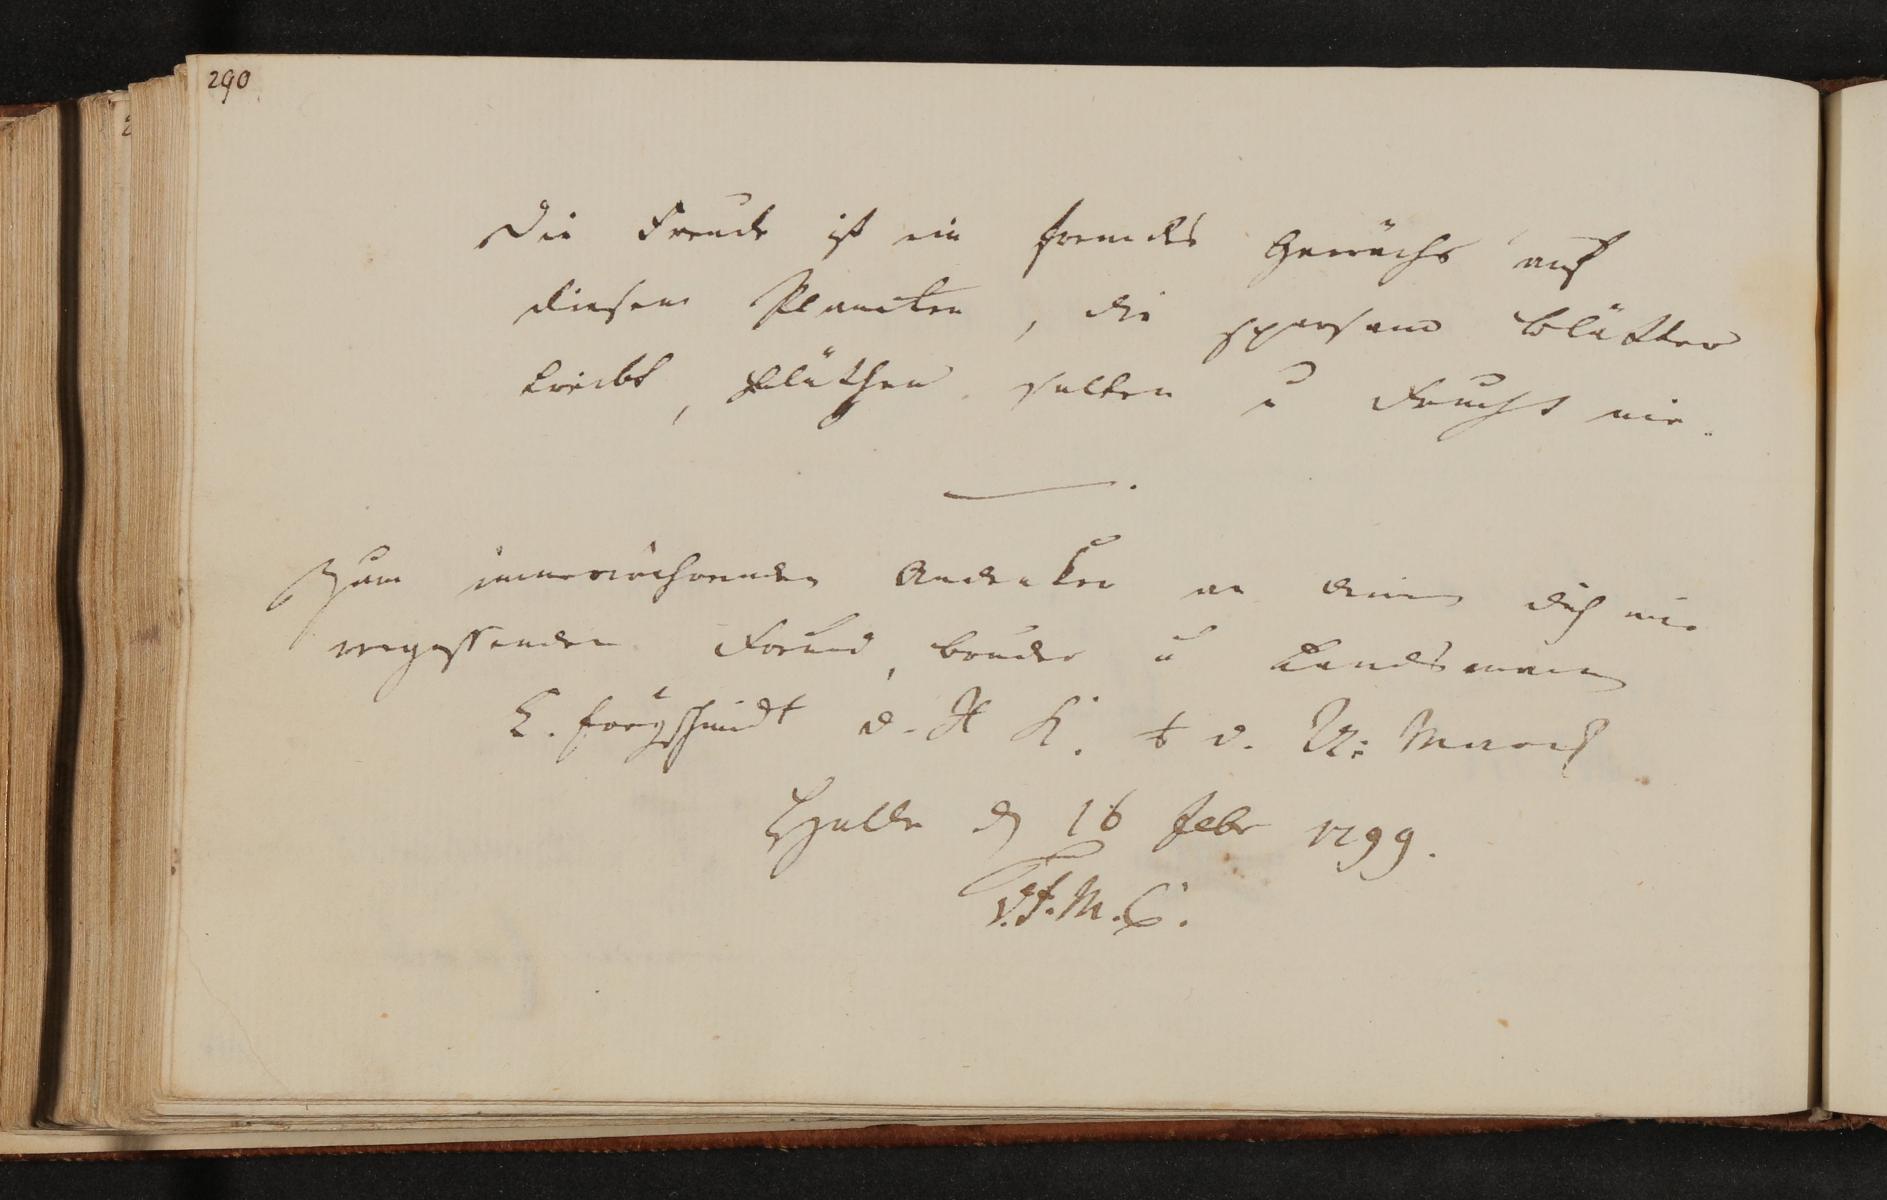 290
Die Freude ist ein fremdes Gewächs auf
diesem Planeten, die sparsam Blätter
treibt, Blüthen selten u Frucht nie.
Zum immerwährenden Andenken an deinen dich nie
vergessenden Freund, Bruder u Landsmann
d. R. K. d. U: Marck
Halle d 16 Febr 1799.